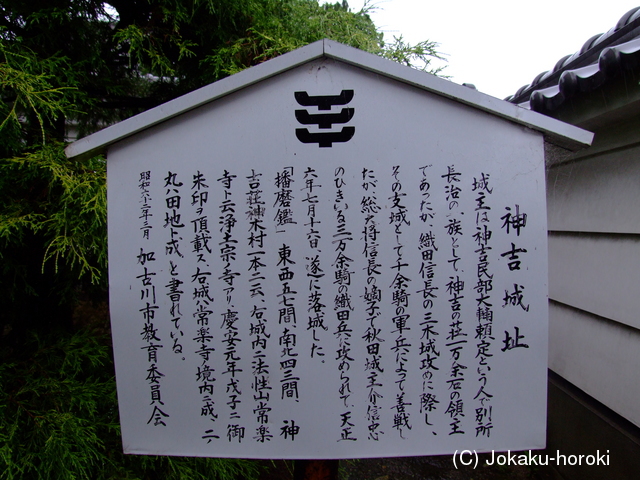 神吉城址
城主は神吉民部大輔頼定という人で別所
長治の一族として、神吉の荘一万余石の領主
であったが、織田信長の三木城攻めに際し、
その支城として千余騎の軍兵によって善戦し
たが、総大将信長の嫡子で秋田城主介信忠
のひきいる三万余騎の織田兵に攻められて、天正
六年七月十六日、遂に落城した。
「播磨鑑」 東西五七間、南北四三間、神
吉荘神木村一本ニ云、右城内ニ法性山常楽
寺ト云浄土宗ノ寺アリ、慶安元年戊子ニ御
朱印ヲ頂戴ス、右城ハ常楽寺ノ境内ニ成、二
丸ハ田地ト成、と書れている。
昭和六十二年三月 加古川市教育委員会
(C) Jokaku-horoki